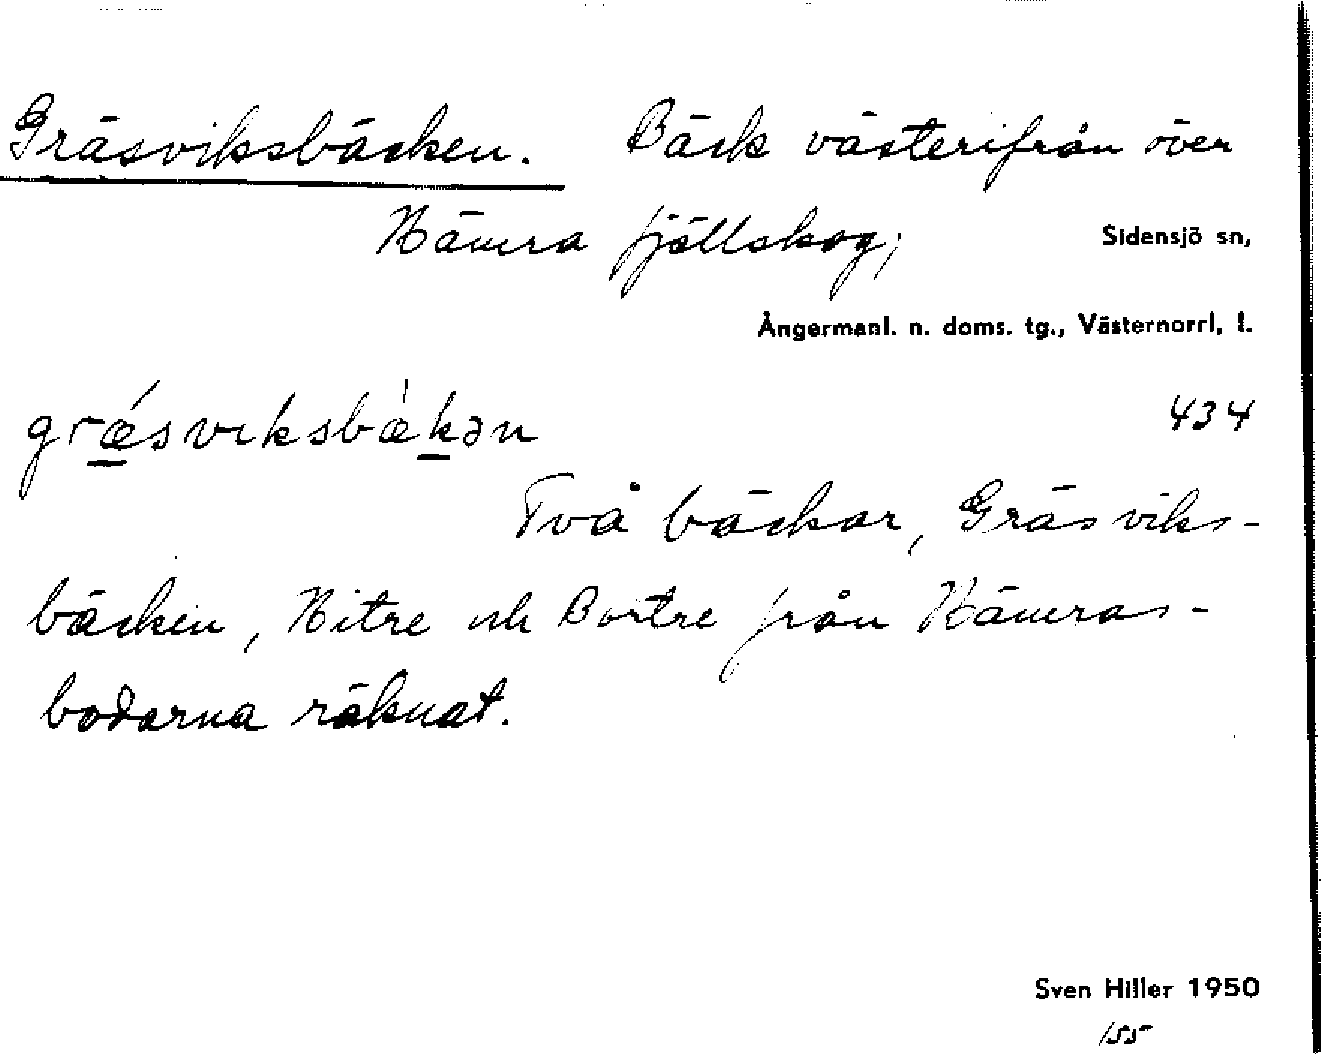 Gräsviksbäcken. Bäck västerifrån över
Hämra fjällskog; Sidensjö sn,
Ångermanl. n. doms. tg., Västernorrl. l.
gr<u>ǽ</u>svɩksbæ̀<u>k</u>ən 434
Två bäckar, Gräsviks-
bäcken, Hitre och Bortre från Hämras-
bodarna räknat.
Sven Hiller 1950
155